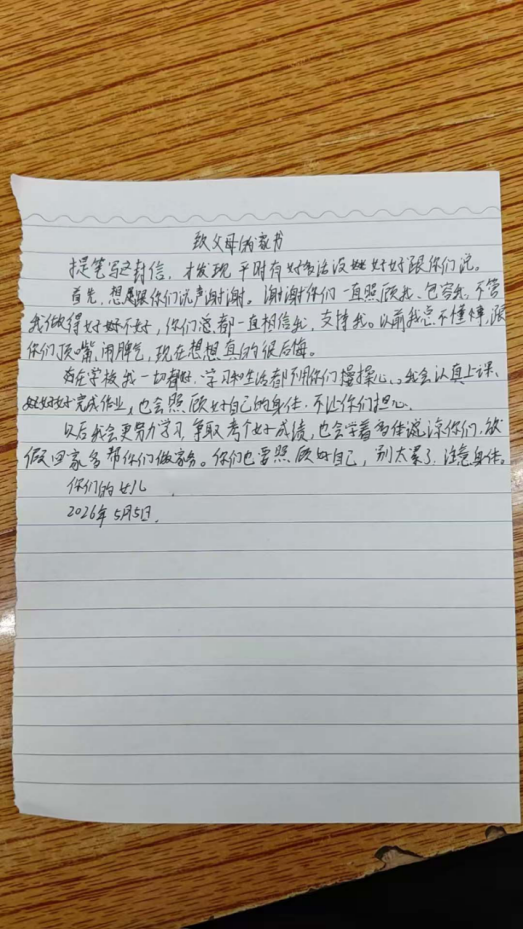 致父母的家书
提笔写这封信，才发现平时有好多话没好好跟你们说。
首先，想跟你们说声谢谢。谢谢你们一直照顾我、包容我，不管
我做得好不好，你们都一直相信我，支持我。以前我总不懂事，跟
你们顶嘴，闹脾气，现在想想真的很后悔。
在学校我一切都好，学习和生活都不用你们操心，我会认真上课、
好好完成作业，也会照顾好自己的身体，不让你们担心。
以后我会更努力学习，争取考个好成绩，也会学着多体谅你们，放
假回家多帮你们做家务。你们也要照顾好自己，别太累了，注意身体。
你们的女儿
2026年5月5日.